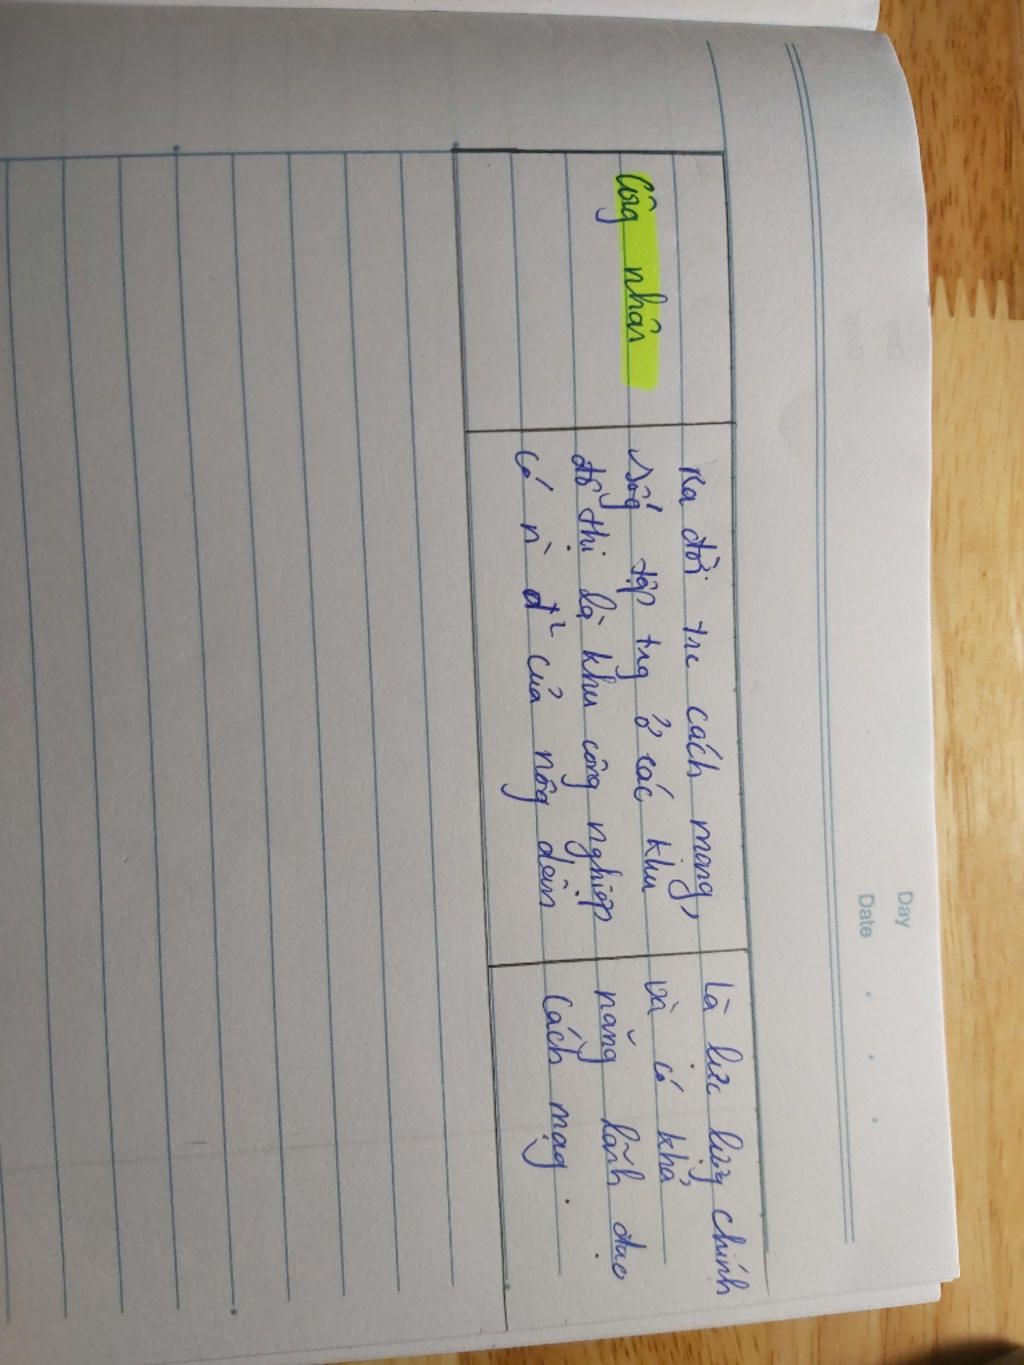 Day
Date
Công nhân
Ra đời trc cách mạng,
sốg tập trg ở các khu
đô thị là khu công nghiệp
có n` đ² của nôg dân
là lực lượg chính
và có khả
năng lãnh đạo
Cách mạg.